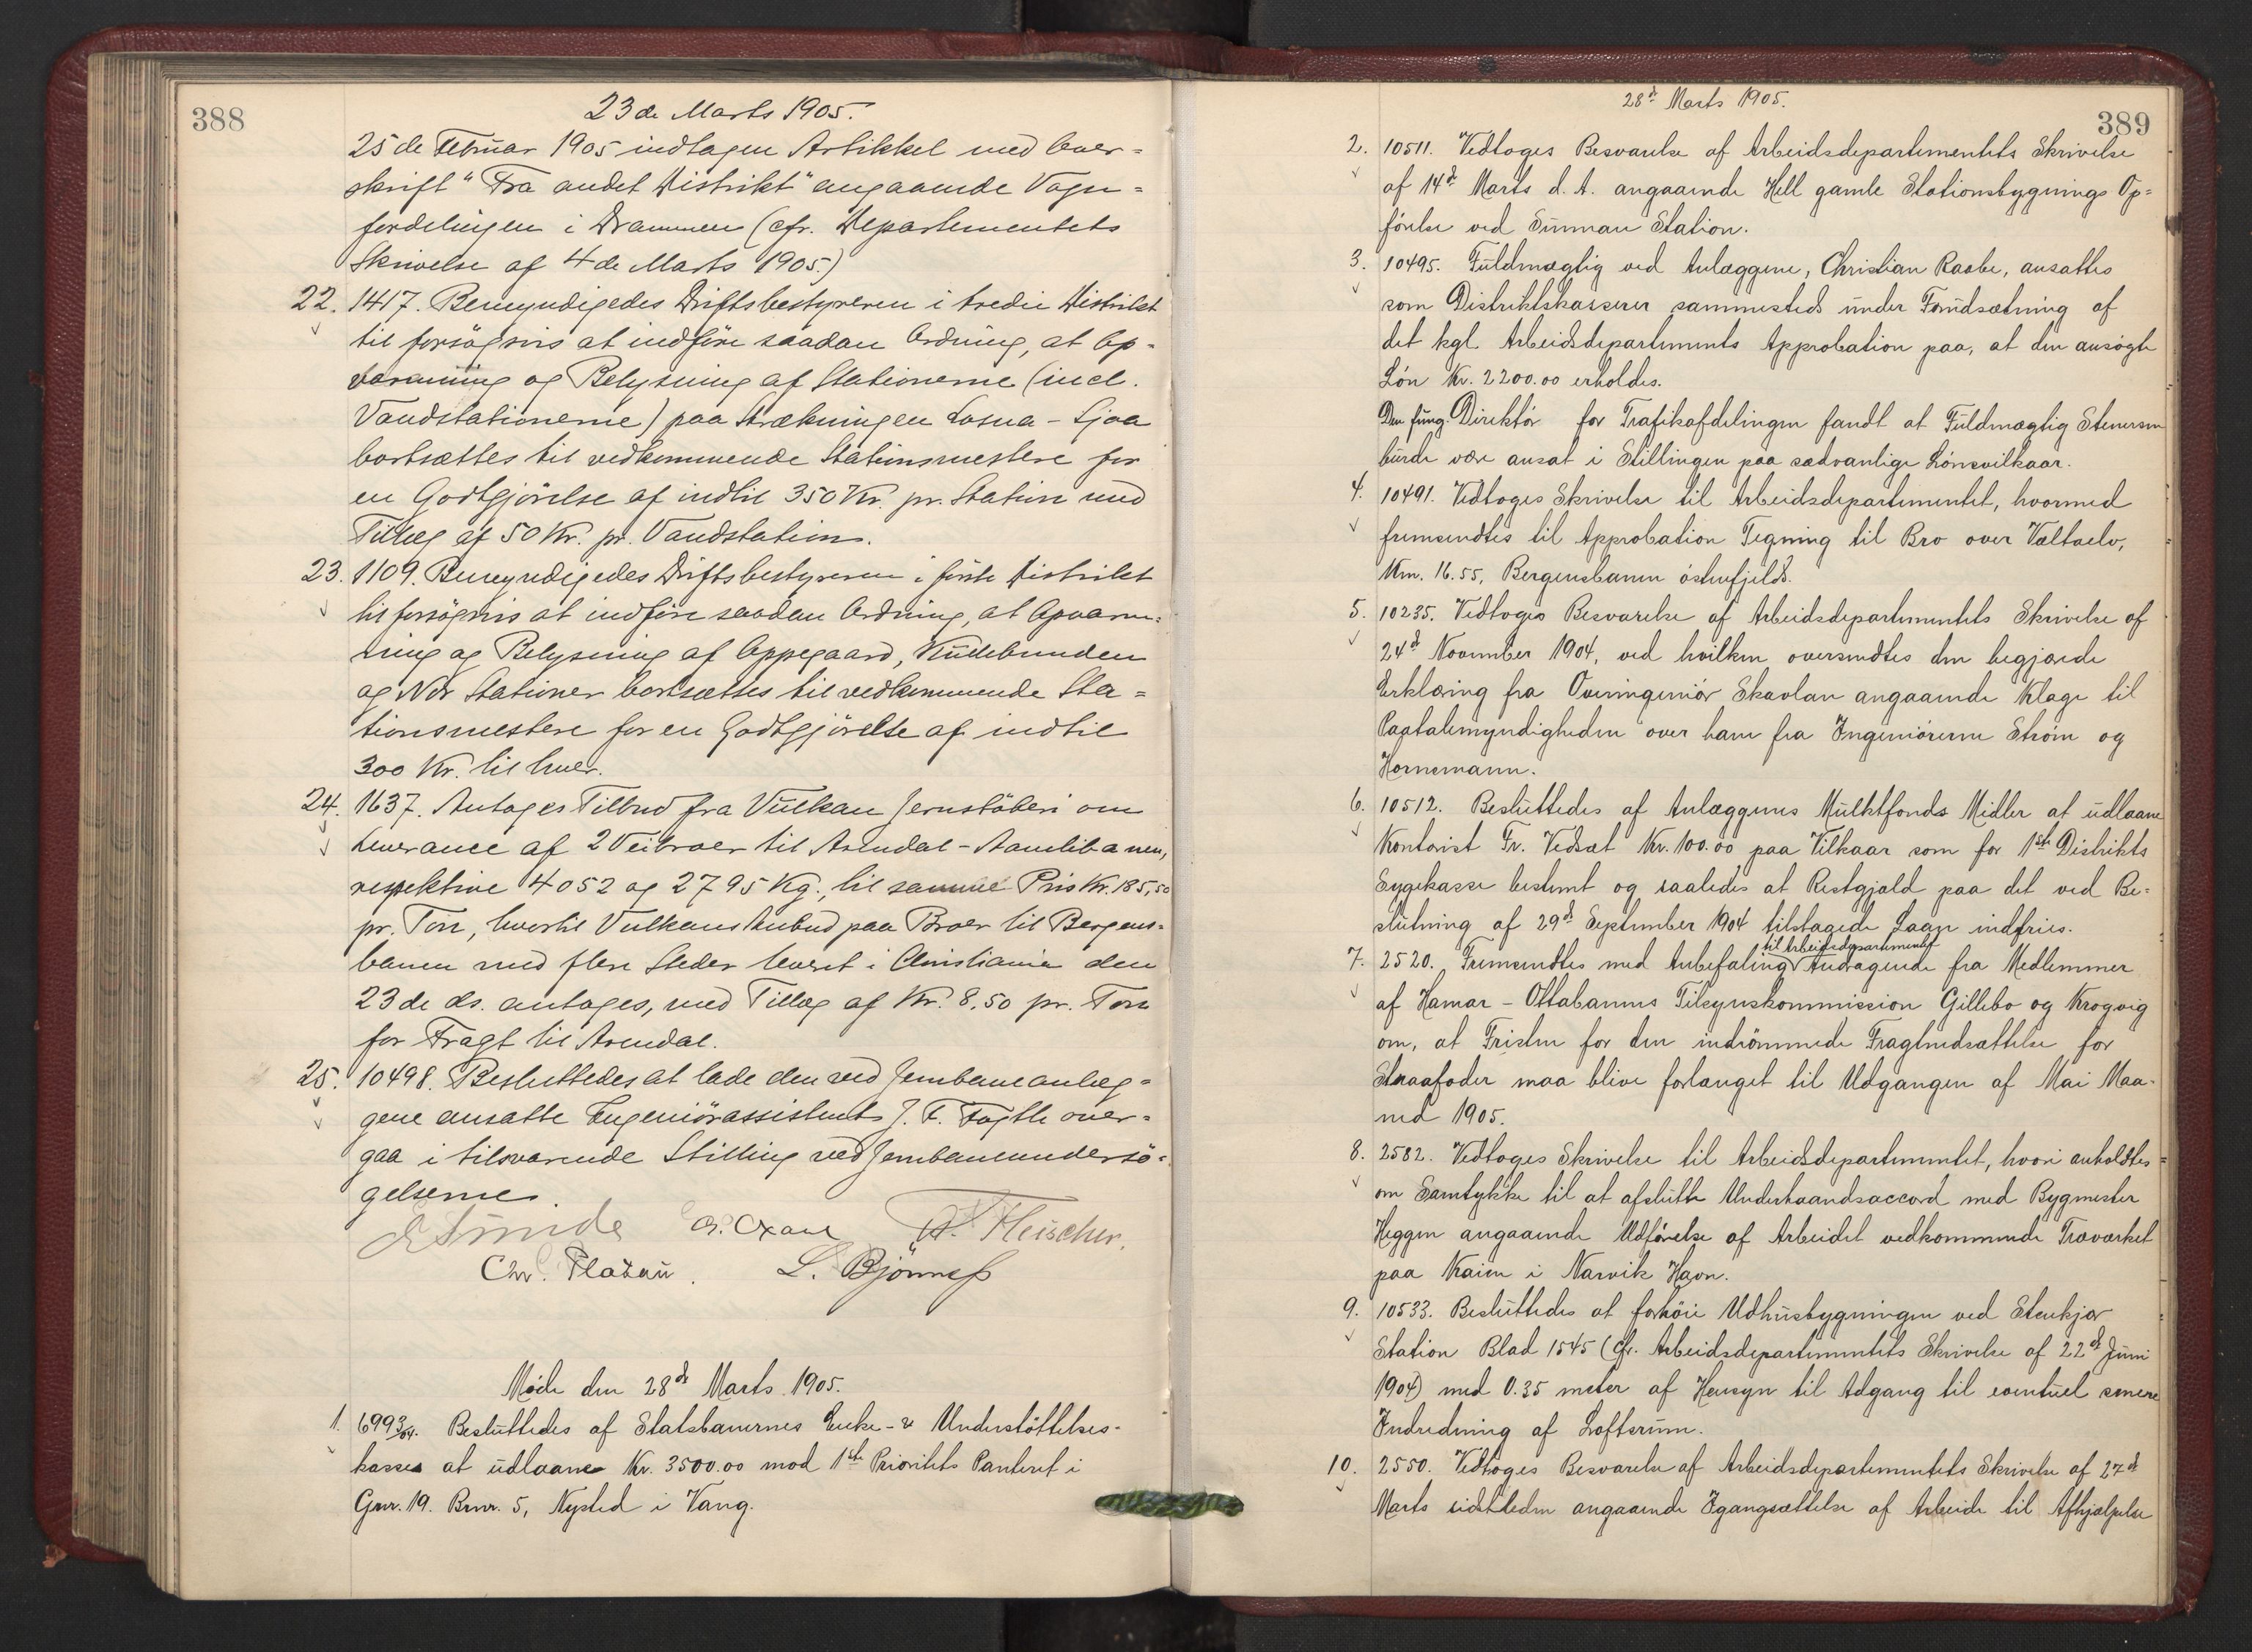 388
23de Marts 1905.
25de Februar 1905 indtagen Artikkel med Over=
skrift "Fra andet Distrikt" angaaende Vogn=
fordelingen i Drammen (cfr. Departementets
Skrivelse af 4de Marts 1905.)
22. 1417. Bemyndigedes Driftsbestyreren i tredie Distrikt
til forsøgsvis at indføre saadan Ordning, at Op=
varmning og Belysning af Stationerne (incl.
Vandstationerne) paa Strækningen Losna - Sjoa
bortsættes til vedkommende Stationsmestere for
en Godtgjørelse af indtil 350 Kr. pr. Station med
Tillæg af 50 Kr. pr. Vandstation.
23. 1109. Bemyndigedes Driftsbestyreren i første Distrikt
til forsøgsvis at indføre saadan Ordning, at Opvarm=
ning og Belysning af Oppegaard, Kullebunden
og Nor Stationer bortsættes til vedkommende Sta=
tionsmestere for en Godtgjørelse af indtil
300 Kr. til hver.
24. 1637. Antoges Tilbud fra Vulkan Jernstøberi om
Leverance af 2 Veibroer til Arendal-Aamlibanen,
respektive 4052 og 2795 Kg., til samme Pris Kr. 185,50
pr. Ton, hvortil Vulkans Anbud paa Broer til Bergens=
banen med flere Steder leveret i Christiania den
23de ds. antoges, med Tillæg af Kr. 8.50 pr. Ton
for Fragt til Arendal.
25. 10498. Besluttedes at lade den ved Jernbaneanlæg=
gene ansatte Ingeniørassistent J. F. Fogtli over=
gaa i tilsvarende Stilling ved Jernbaneundersø=
gelserne.
E Sunde G. Oxaal A. Fleischer.
Chr. Platou. L. Bjønness
Møde den 28de Marts 1905.
1. 6993/04. Besluttedes af Statsbanernes Enke- & Understøttelses-
kasse at udlaane Kr. 3500.00 mod 1ste Prioritets Panteret i
Gnr. 19. Brnr. 5, Nysted i Vang.
28de Marts 1905.
389
2. 10511. Vedtoges Besvarelse af Arbeidsdepartementets Skrivelse
af 14de Marts d. A. angaaende Hell gamle Stationsbygnings Op=
førelse ved Sunnan Station.
3. 10495. Fuldmægtig ved Anlæggene, Christian Raabe, ansattes
som Distriktskasserer sammesteds under Forudsætning af
det kgl. Arbeidsdepartements Approbation paa, at den ansøgte
Løn Kr. 2200.00 erholdes.
Den fung. Direktør for Trafikafdelingen fandt at Fuldmægtig Stenersen
burde være ansat i Stillingen paa sædvanlige Lønsvilkaar.
4. 10491. Vedtoges Skrivelse til Arbeidsdepartementet, hvormed
fremsendtes til Approbation Tegning til Bro over Væltaelv,
Km. 16.55, Bergensbanen østenfjelds.
5. 10235. Vedtoges Besvarelse af Arbeidsdepartementets Skrivelse af
24de November 1904, ved hvilken oversendtes den begjærede
Erklæring fra Overingeniør Skavlan angaaende Klage til
Paatalemyndigheden over ham fra Ingeniørerne Strøm og
Hornemann.
6. 10512. Besluttedes af Anlæggenes Mulktfonds Midler at udlaane
Kontorist Fr. Vedsæt Kr. 100.00 paa Vilkaar som for 1ste Distrikts
Sygekasse bestemt og saaledes at Restgjæld paa det ved Be=
slutning af 29de September 1904 tilstaaede Laan indfries.
til Arbeidsdepartementet
7. 2520. Fremsendtes med Anbefaling Andragende fra Medlemmer
af Hamar - Ottabanens Tilsynskommission Gillebo og Krogvig
om, at Fristen for den indrømmede Fragtnedsættelse for
Straafoder maa blive forlænget til Udgangen af Mai Maa-
ned 1905.
8. 2582. Vedtoges Skrivelse til Arbeidsdepartementet, hvori anholdtes
om Samtykke til at afslutte Underhaandsaccord med Bygmester
Heggen angaaende Udførelse af Arbeidet vedkommende Træværket
paa Kaien i Narvik Havn.
9. 10533. Besluttedes at forhøie Udhusbygningen ved Stenkjær
Station Blad 1545 (cfr. Arbeidsdepartementets Skrivelse af 22de Juni
1904) med 0.35 meter af Hensyn til Adgang til eventuel senere
Indredning af Loftsrum.
10. 2550. Vedtoges Besvarelse af Arbeidsdepartementets Skrivelse af 27de
Marts sidstleden angaaende Igangsættelse af Arbeide til Afhjælpelse